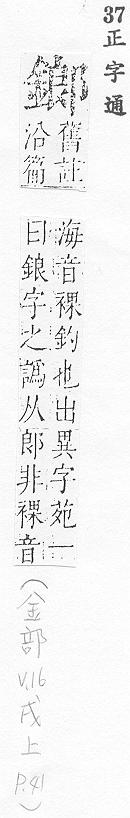 37 正字通
鎯
舊註
沿篇
海音裸釣也出異字苑一
曰鋃字之譌从郎非裸音
(金部 V.16 戌上 P.41)